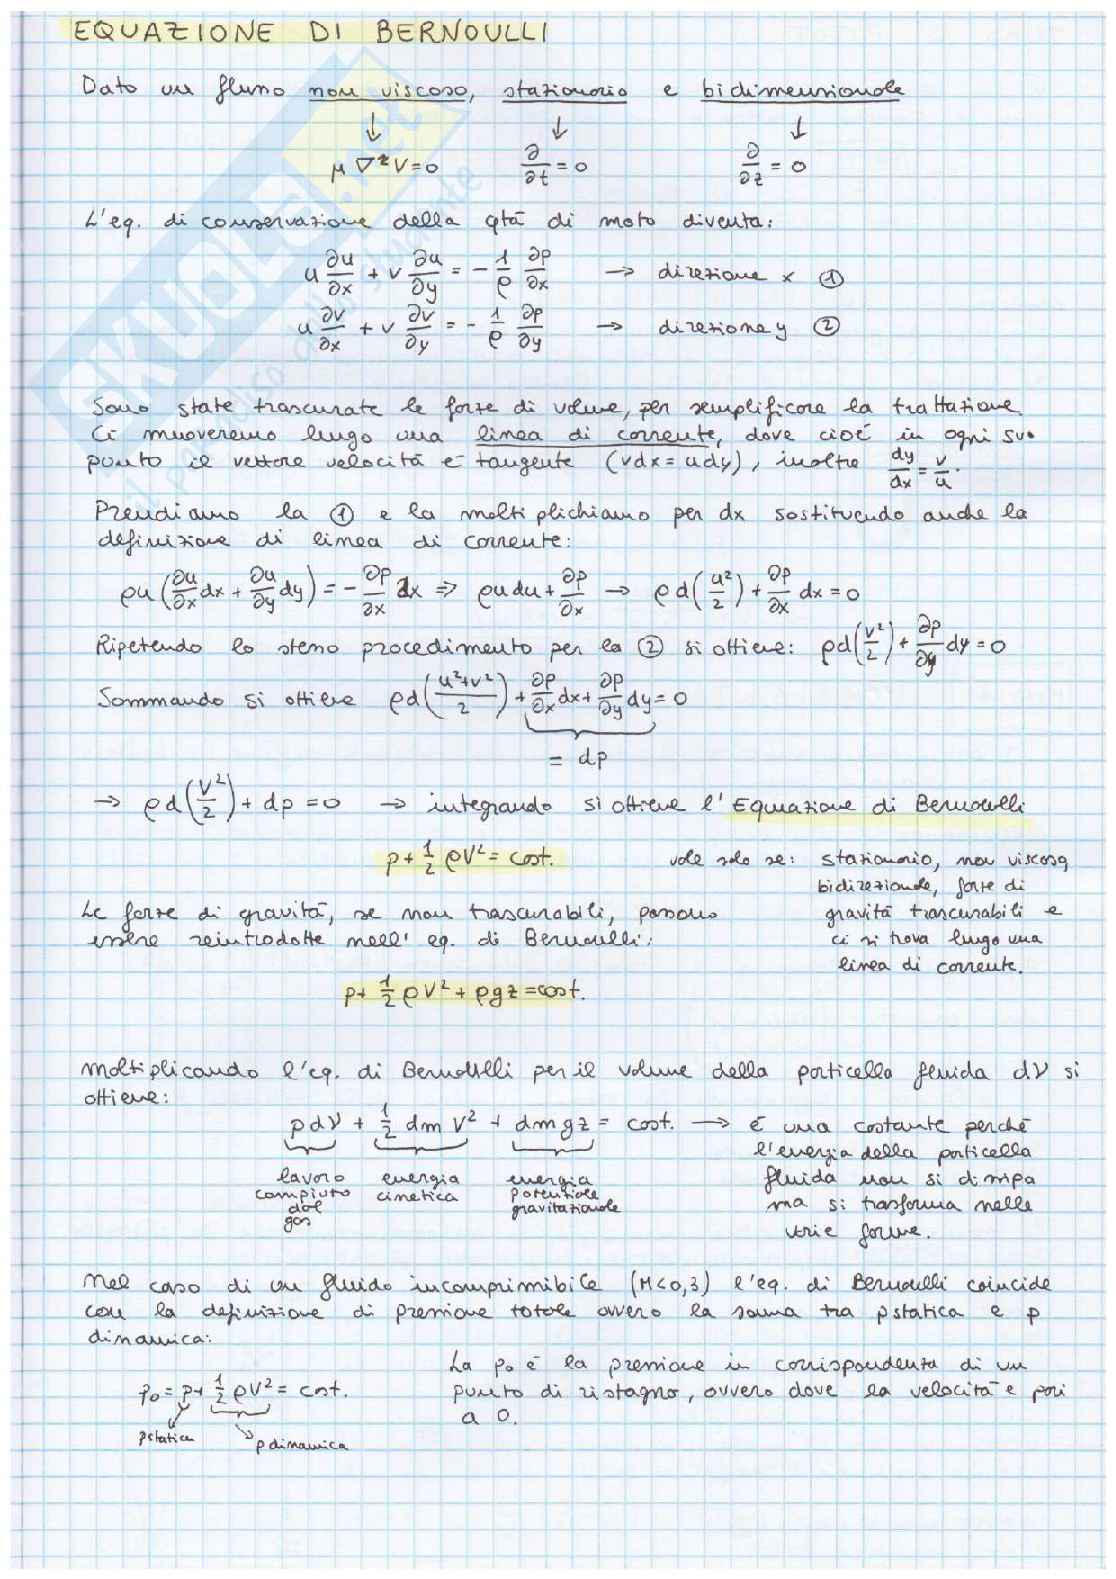 EQUAZIONE DI BERNOULLI
Dato un flusso non viscoso, stazionario e bidimensionale
↓ ↓ ↓
μ ∇²V=0 ∂/∂t = 0 ∂/∂z = 0
L'eq. di conservazione della qtà di moto diventa:
u ∂u/∂x + v ∂u/∂y = - 1/ρ ∂p/∂x → direzione x ①
u ∂v/∂x + v ∂v/∂y = - 1/ρ ∂p/∂y → direzione y ②
Sono state trascurate le forze di volume, per semplificare la trattazione.
Ci muoveremo lungo una linea di corrente, dove cioè in ogni suo
punto il vettore velocità è tangente (vdx = udy), inoltre dy/dx = v/u.
Prendiamo la ① e la moltiplichiamo per dx sostituendo anche la
definizione di linea di corrente:
ρu(∂u/∂x dx + ∂u/∂y dy) = - ∂p/∂x dx ⇒ ρudu + ∂p/∂x → ρd(u²/2) + ∂p/∂x dx = 0
Ripetendo lo stesso procedimento per la ② si ottiene: ρd(v²/2) + ∂p/∂y dy = 0
Sommando si ottiene ρd((u²+v²)/2) + ∂p/∂x dx + ∂p/∂y dy = 0
= dp
→ ρd(V²/2) + dp = 0 → integrando si ottiene l'Equazione di Bernoulli
p + 1/2 ρV² = cost. vale solo se: stazionario, non viscoso,
bidirezionale, forze di
gravità trascurabili e
ci si trova lungo una
linea di corrente.
Le forze di gravità, se non trascurabili, possono
essere reintrodotte nell' eq. di Bernoulli:
p + 1/2 ρV² + ρgz = cost.
Moltiplicando l'eq. di Bernoulli per il volume della particella fluida dV si
ottiene:
pdV + 1/2 dm V² + dmgz = cost. → È una costante perché
l'energia della particella
fluida non si dissipa
ma si trasforma nelle
varie forme.
lavoro compiuto dal gas
energia cinetica
energia potenziale gravitazionale
Nel caso di un fluido incomprimibile (M<0,3) l'eq. di Bernoulli coincide
con la definizione di pressione totale ovvero la somma tra p statica e p
dinamica:
p₀ = p + 1/2 ρV² = cost.
p statica
p dinamica
La p₀ è la pressione in corrispondenza di un
punto di ristagno, ovvero dove la velocità è pari
a 0.
SKUOLA.net